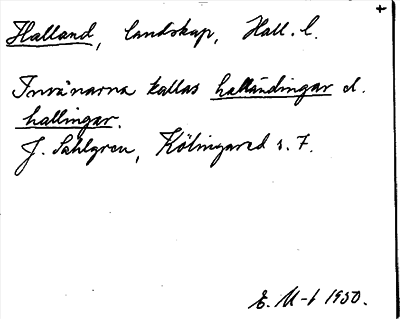 +
Halland, landskap, Hall. l.
Invånarna kallas halländingar el.
hallingar.
J. Sahlgren, Kölingared s. 7.
E. M-t 1950.